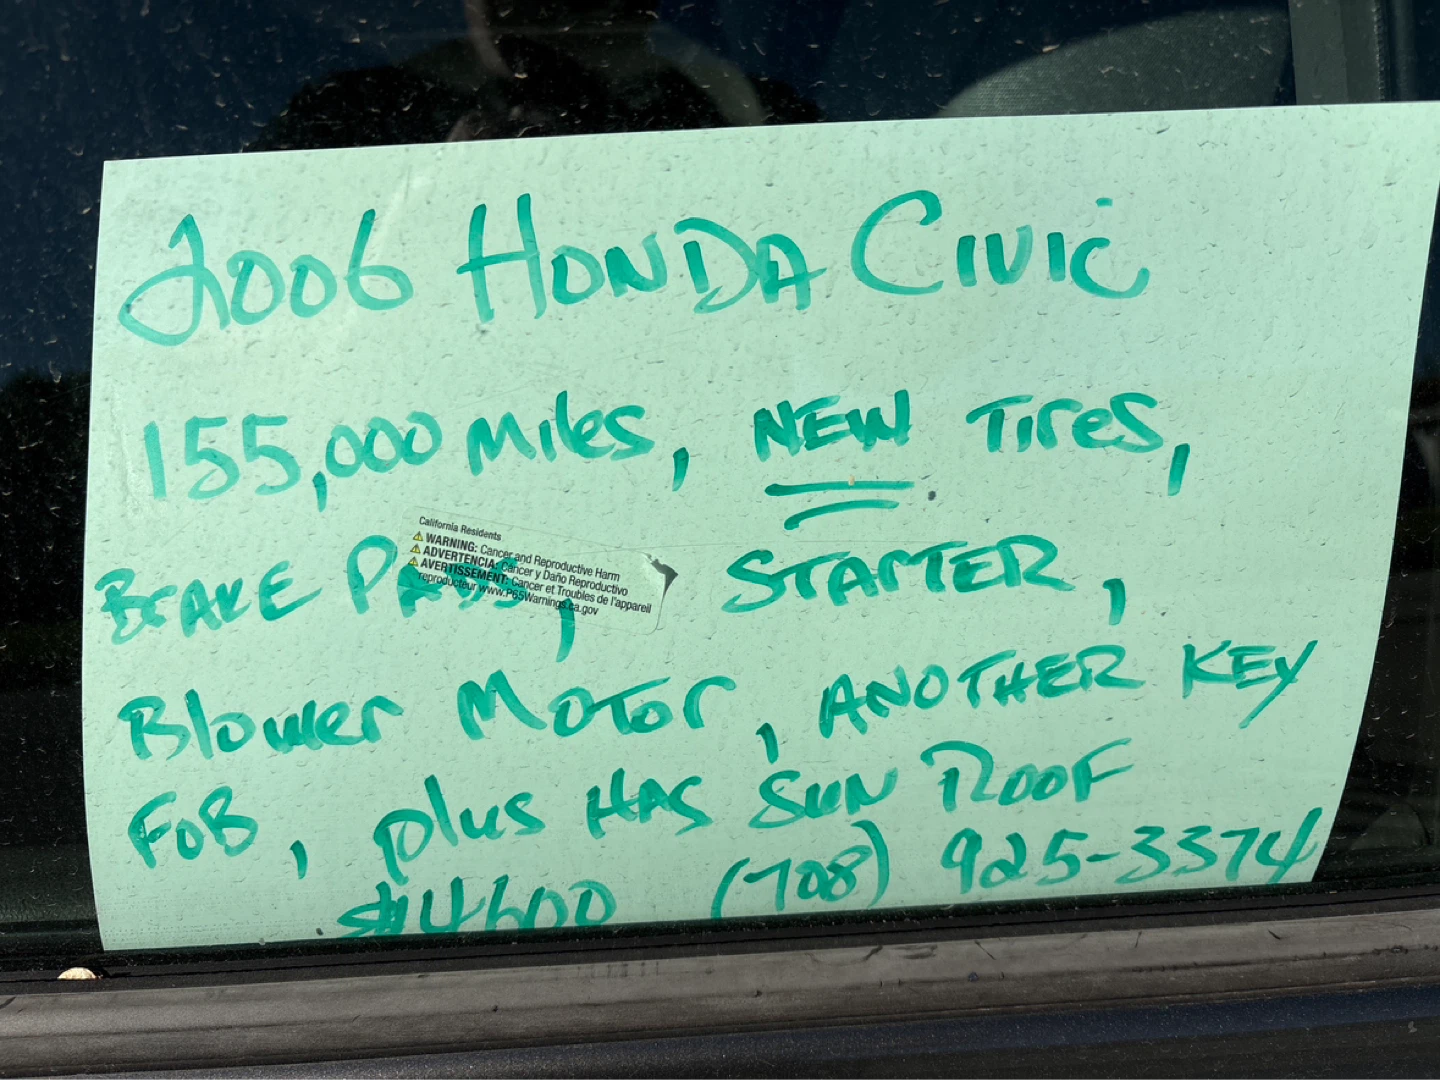 2006 HONDA CIVIC
155,000 Miles, NEW Tires,
BRAKE PADS, STARTER,
California Residents
WARNING: Cancer and Reproductive Harm
ADVERTENCIA: Cáncer y Daño Reproductivo
AVERTISSEMENT: Cancer et Troubles de l'appareil
reproducteur www.P65Warnings.ca.gov
Blower Motor, ANOTHER KEY
FOB, plus HAS SUN ROOF
$4600 (708) 925-3374